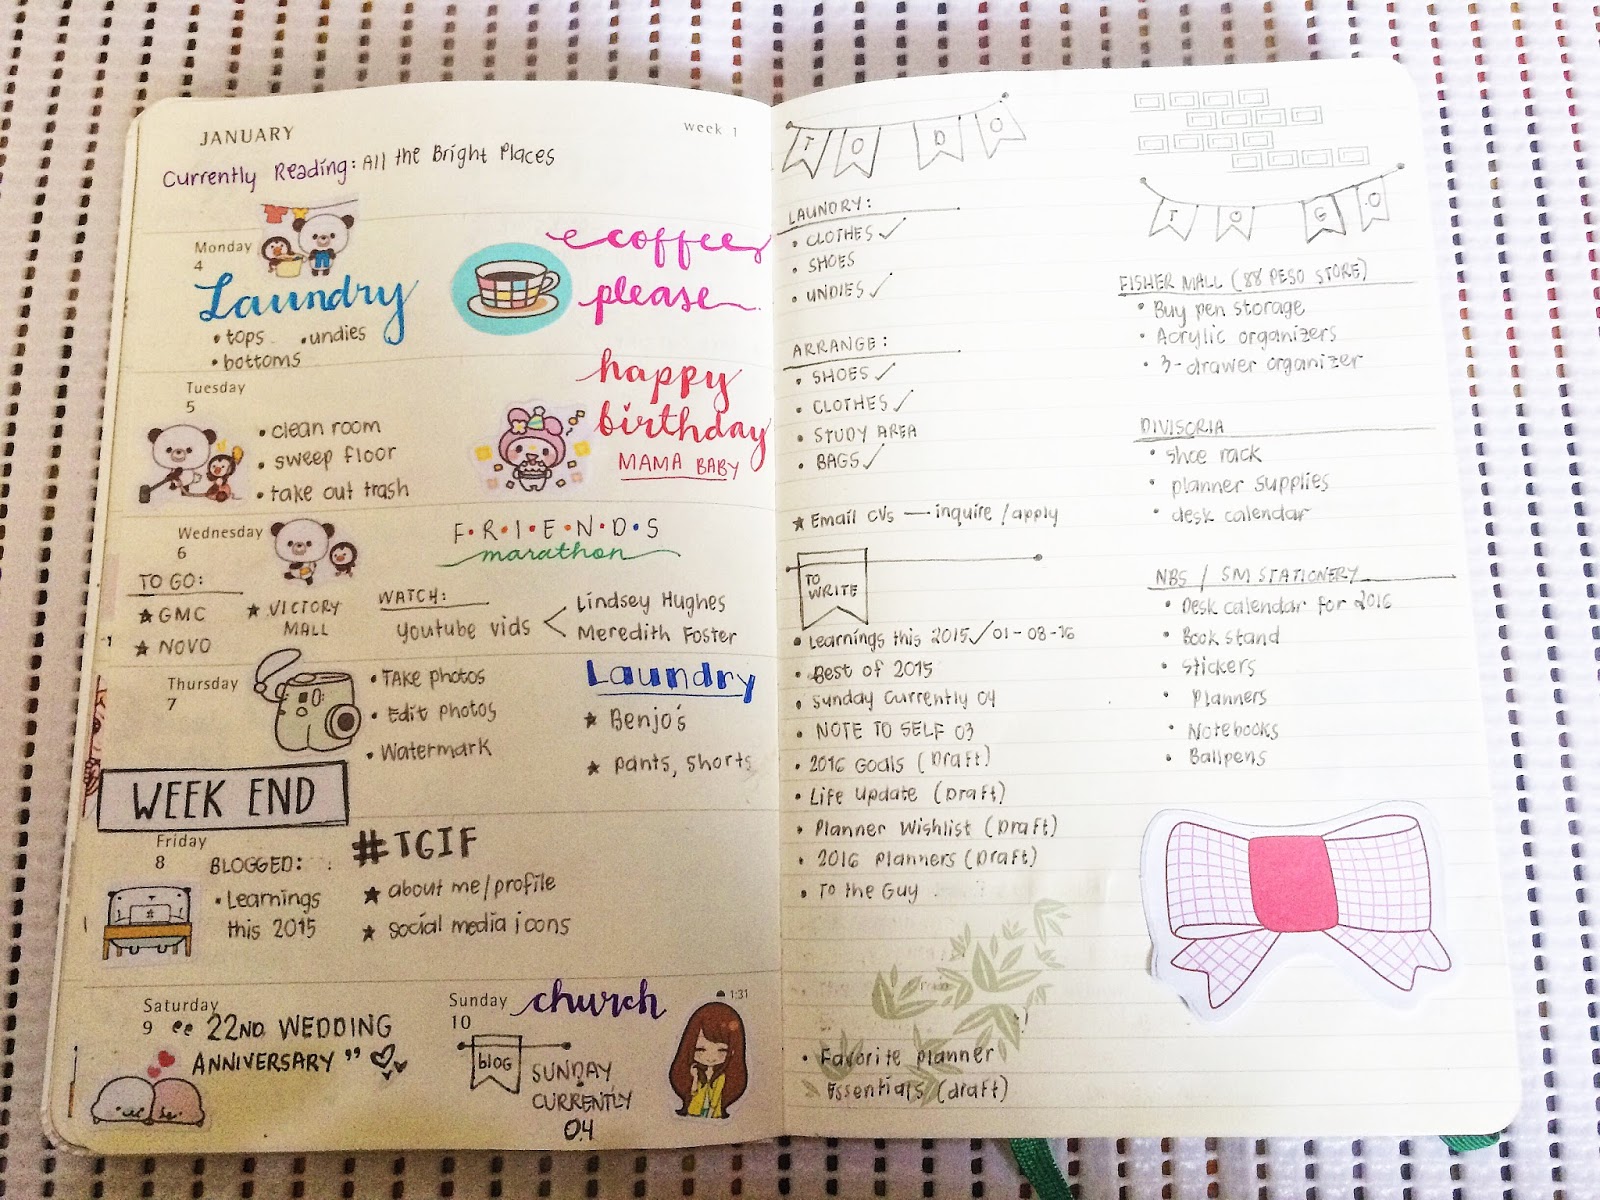 JANUARY
week 1
Currently Reading: All the Bright Places
Monday
4
Laundry
• tops • undies
• bottoms
coffee
please
Tuesday
5
• clean room
• sweep floor
• take out trash
happy
birthday
MAMA BABY
Wednesday
6
TO GO:
★ GMC
★ NOVO
★ VICTORY
MALL
F•R•I•E•N•D•S
marathon
WATCH:
Youtube vids
Lindsey Hughes
Meredith Foster
Thursday
7
• Take photos
• Edit photos
• Watermark
Laundry
★ Benjo's
★ pants, shorts
WEEK END
Friday
8
BLOGGED:
• Learnings
this 2015
#TGIF
★ about me/profile
★ social media icons
Saturday
9
"22ND WEDDING
ANNIVERSARY"
Sunday
10
church
1:31
blog
SUNDAY
CURRENTLY
04
TO DO
LAUNDRY:
• CLOTHES ✓
• SHOES
• UNDIES ✓
ARRANGE:
• SHOES ✓
• CLOTHES ✓
• STUDY AREA
• BAGS ✓
★ Email CVs — inquire / apply
TO
WRITE
• Learnings this 2015 ✓ 01-08-16
• Best of 2015
• Sunday Currently 04
• NOTE TO SELF 03
• 2016 Goals (Draft)
• Life Update (Draft)
• Planner Wishlist (Draft)
• 2016 Planners (Draft)
• To the Guy
• Favorite planner
Essentials (draft)
TO GO
FISHER MALL (88 PESO STORE)
• Buy pen storage
• Acrylic organizers
• 3-drawer organizer
DIVISORIA
• Shoe rack
• planner supplies
• desk calendar
NBS / SM STATIONERY
• Desk calendar for 2016
• Book stand
• Stickers
• Planners
• Notebooks
• Ballpens